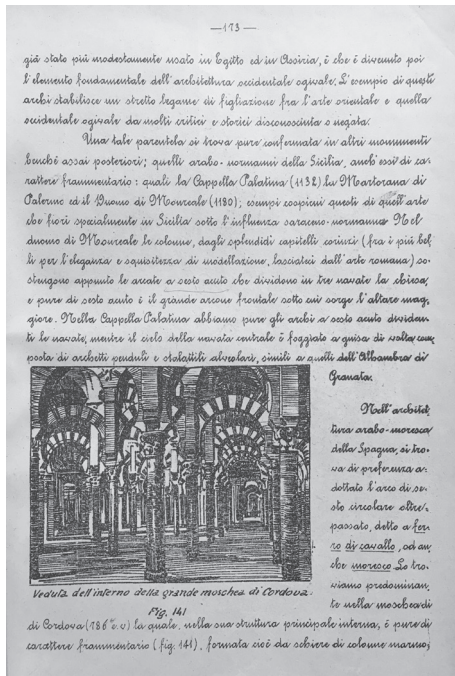 —173—
già stato più modestamente usato in Egitto ed in Assiria, è che è divenuto poi
l'elemento fondamentale dell'architettura occidentale ogivale. L'esempio di questi
archi stabilisce un stretto legame di figliazione fra l'arte orientale e quella
occidentale ogivale da molti critici e storici disconosciuta o negata.
Una tale parentela si trova pure confermata in altri monumenti
benché assai posteriori; quelli arabo-normanni della Sicilia, anch'essi di ca-
rattere frammentario: quali la Cappella Palatina (1132) la Martorana di
Palermo ed il Duomo di Monreale (1180); esempi cospicui questi di quell'arte
che fiorì specialmente in Sicilia sotto l'influenza saraceno-normanna. Nel
duomo di Monreale le colonne, dagli splendidi capitelli corinzi (fra i più bel-
li per l'eleganza e squisitezza di modellazione, lasciateci dall'arte romana) so-
stengono appunto le arcate a sesto acuto che dividono in tre navate la chiesa,
e pure di sesto acuto è il grande arcone frontale sotto cui sorge l'altare mag-
giore. Nella Cappella Palatina abbiamo pure gli archi a sesto acuto dividen-
ti le navate, mentre il cielo della navata centrale è foggiato a guisa di volta com-
posta di archetti penduli e stalattiti alveolari, simili a quelli dell'Alhambra di
Granata.
Nell'architet-
tura arabo-moresca
della Spagna, si tro-
va di preferenza a-
dottato l'arco di se-
sto circolare oltre-
passato, detto a fer-
ro di cavallo, od an-
che moresco. Lo tro-
viamo predominan-
te nella moschea di
Veduta dell'interno della grande moschea di Cordova.
Fig. 141
di Cordova (786 e.v) la quale, nella sua struttura principale interna, è pure di
carattere frammentario (fig. 141), formata cioè da schiere di colonne marmo,